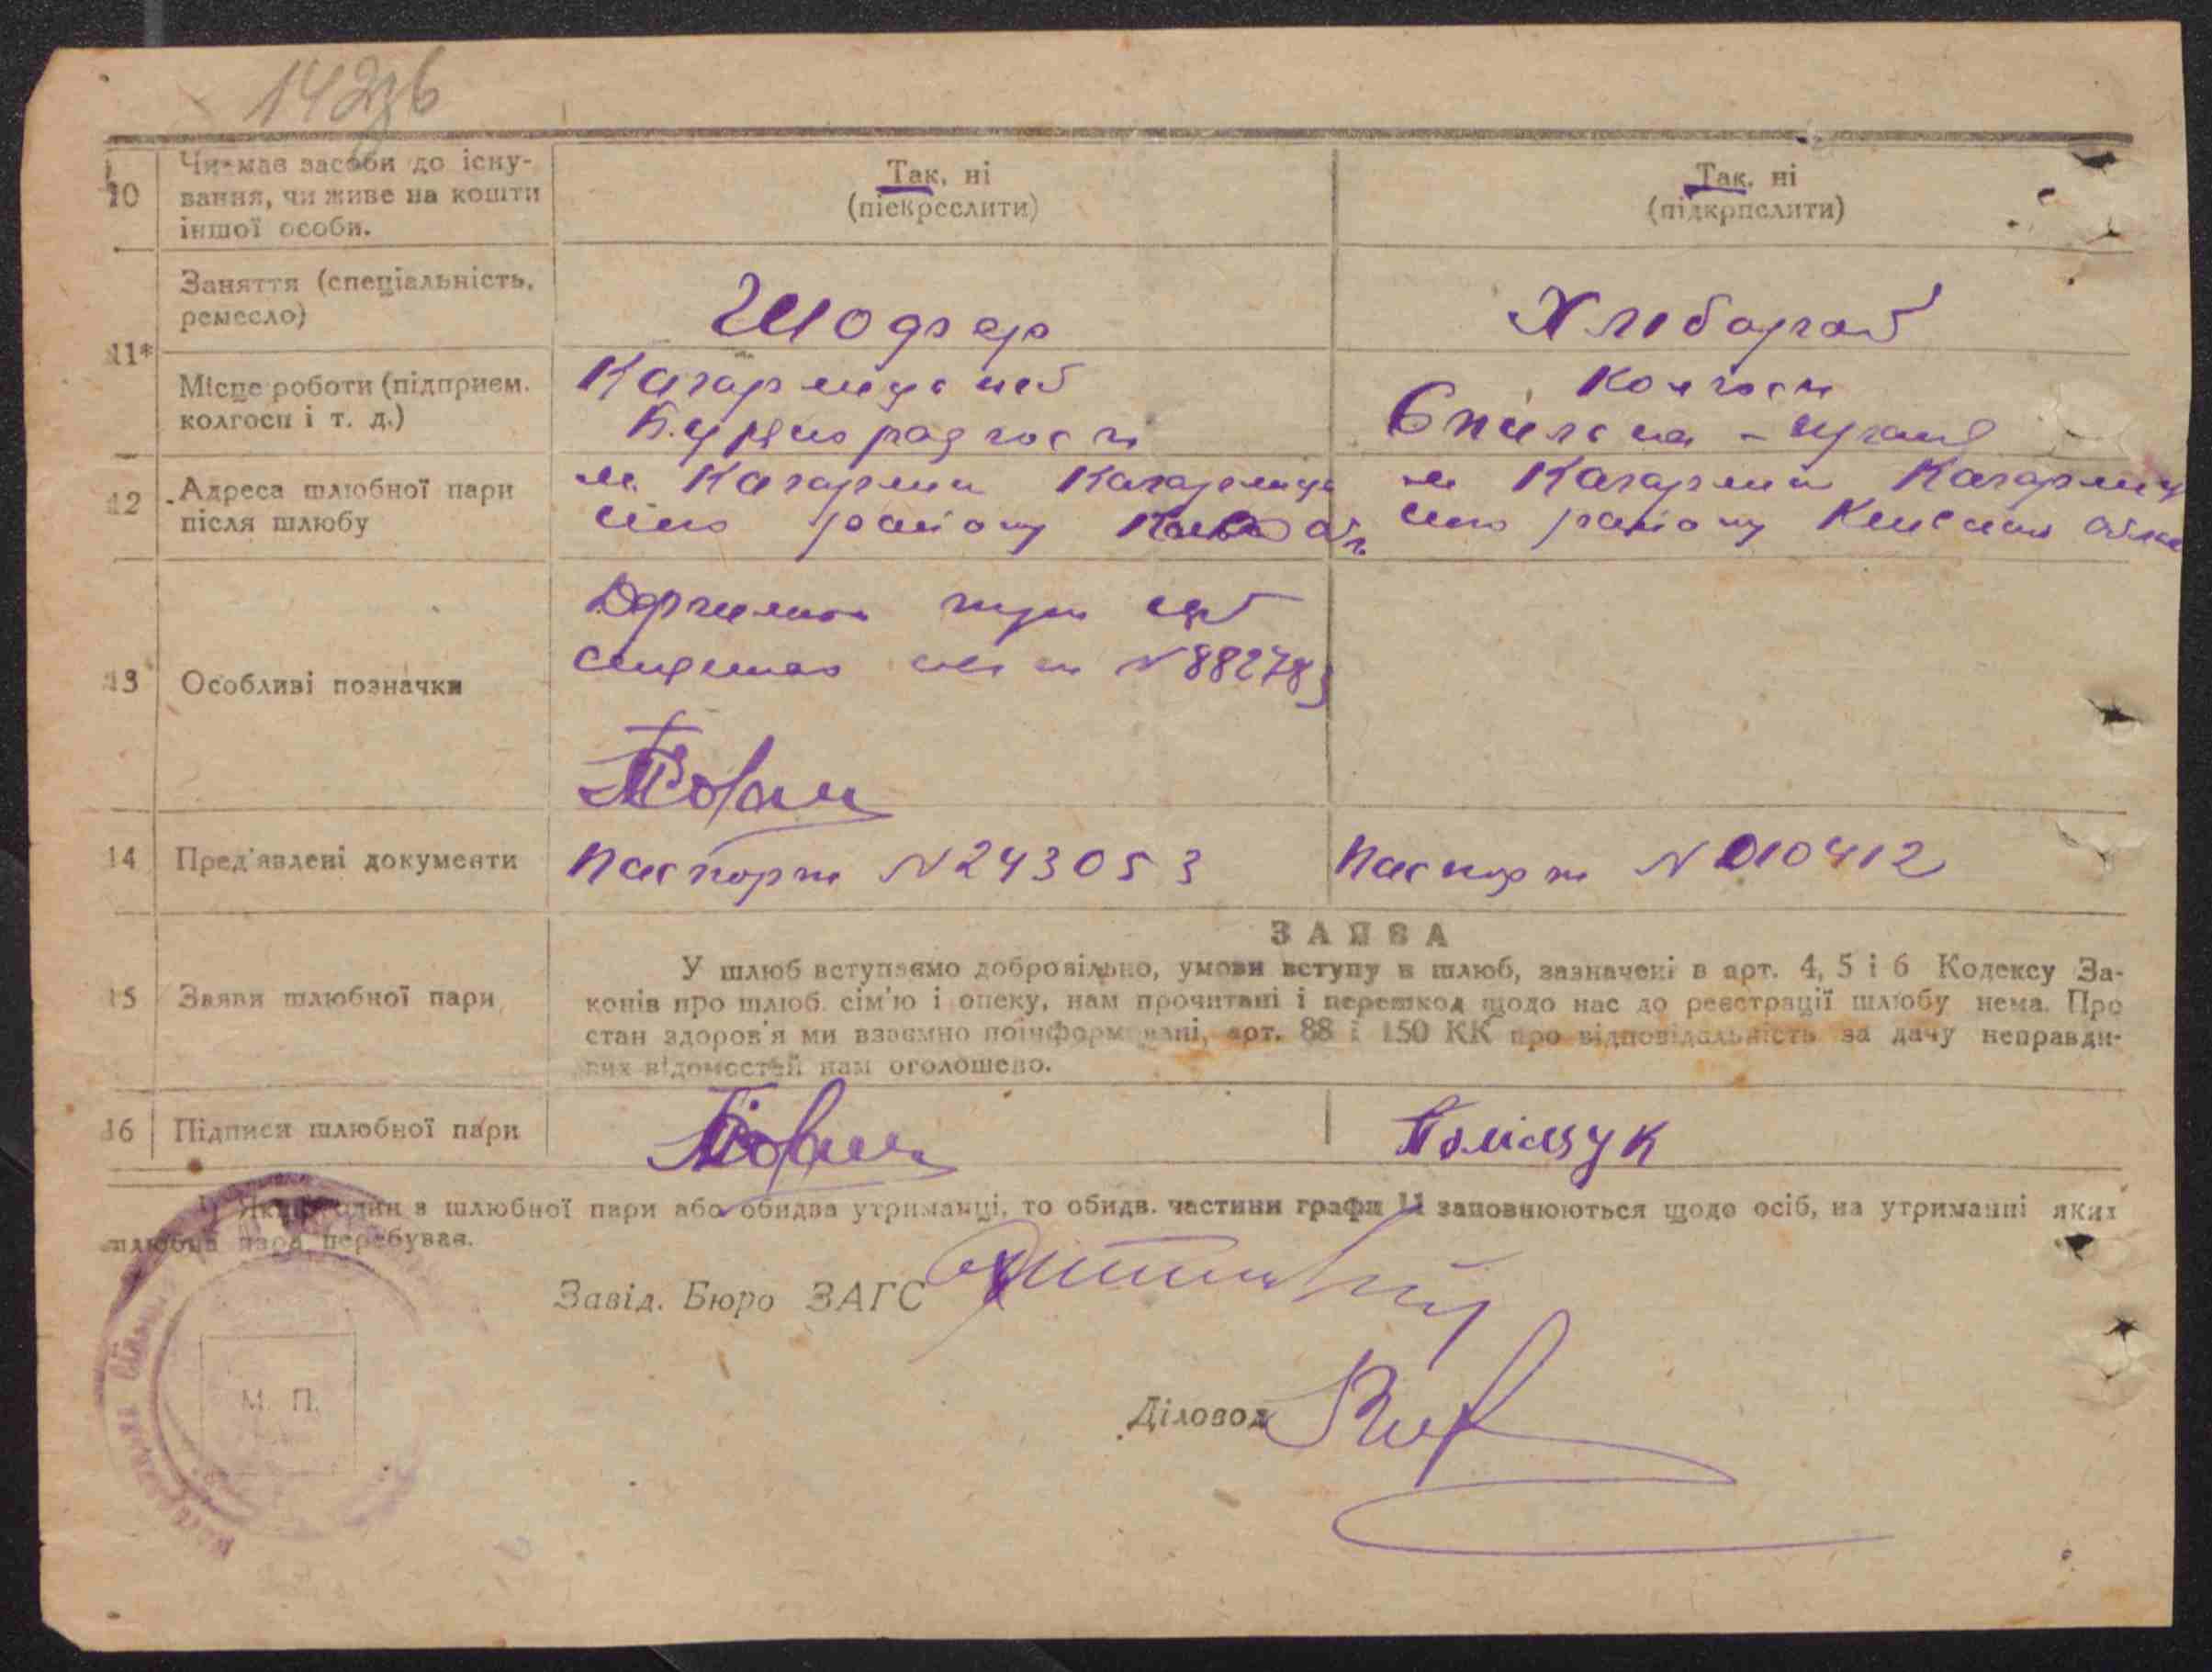 10
Чи має засоби до існу-
вання, чи живе на кошти
іншої особи.
Так, ні
(піекреслити)
Так, ні
(підкрпслити)
11*
Заняття (спеціальність,
ремесло)
Шофер
Хлібороб
Місце роботи (підприєм.
колгосп і т. д.)
Кагарлицький
Бурякорадгосп
Колгосп
Спілка -
12
Адреса шлюбної пари
після шлюбу
м. Кагарлик Кагарлиць
кого району
м Кагарлик Кагарлиць
кого району Київської області
13
Особливі позначки
N 882783
14
Пред'явлені документи
Паспорт N 243053
Паспорт N 010412
15
Заяви шлюбної пари
ЗАЯВА
У шлюб вступаємо добровільно, умови вступу в шлюб, зазначені в арт. 4, 5 і 6 Кодексу За-
конів про шлюб. сім'ю і опеку, нам прочитані і перешкод щодо нас до реєстрації шлюбу нема. Про
стан здоров'я ми взаємно поінформовані, арт. 88 і 150 КК про відповідальність за дачу неправди-
вих відомостей нам оголошено.
16
Підписи шлюбної пари
Поліщук
*) Якщо один з шлюбної пари або обидва утриманці, то обидв. частини графи 11 заповнюються щодо осіб, на утриманні яких
шлюбна пара перебуває.
Завід. Бюро ЗАГС
М. П.
Діловод